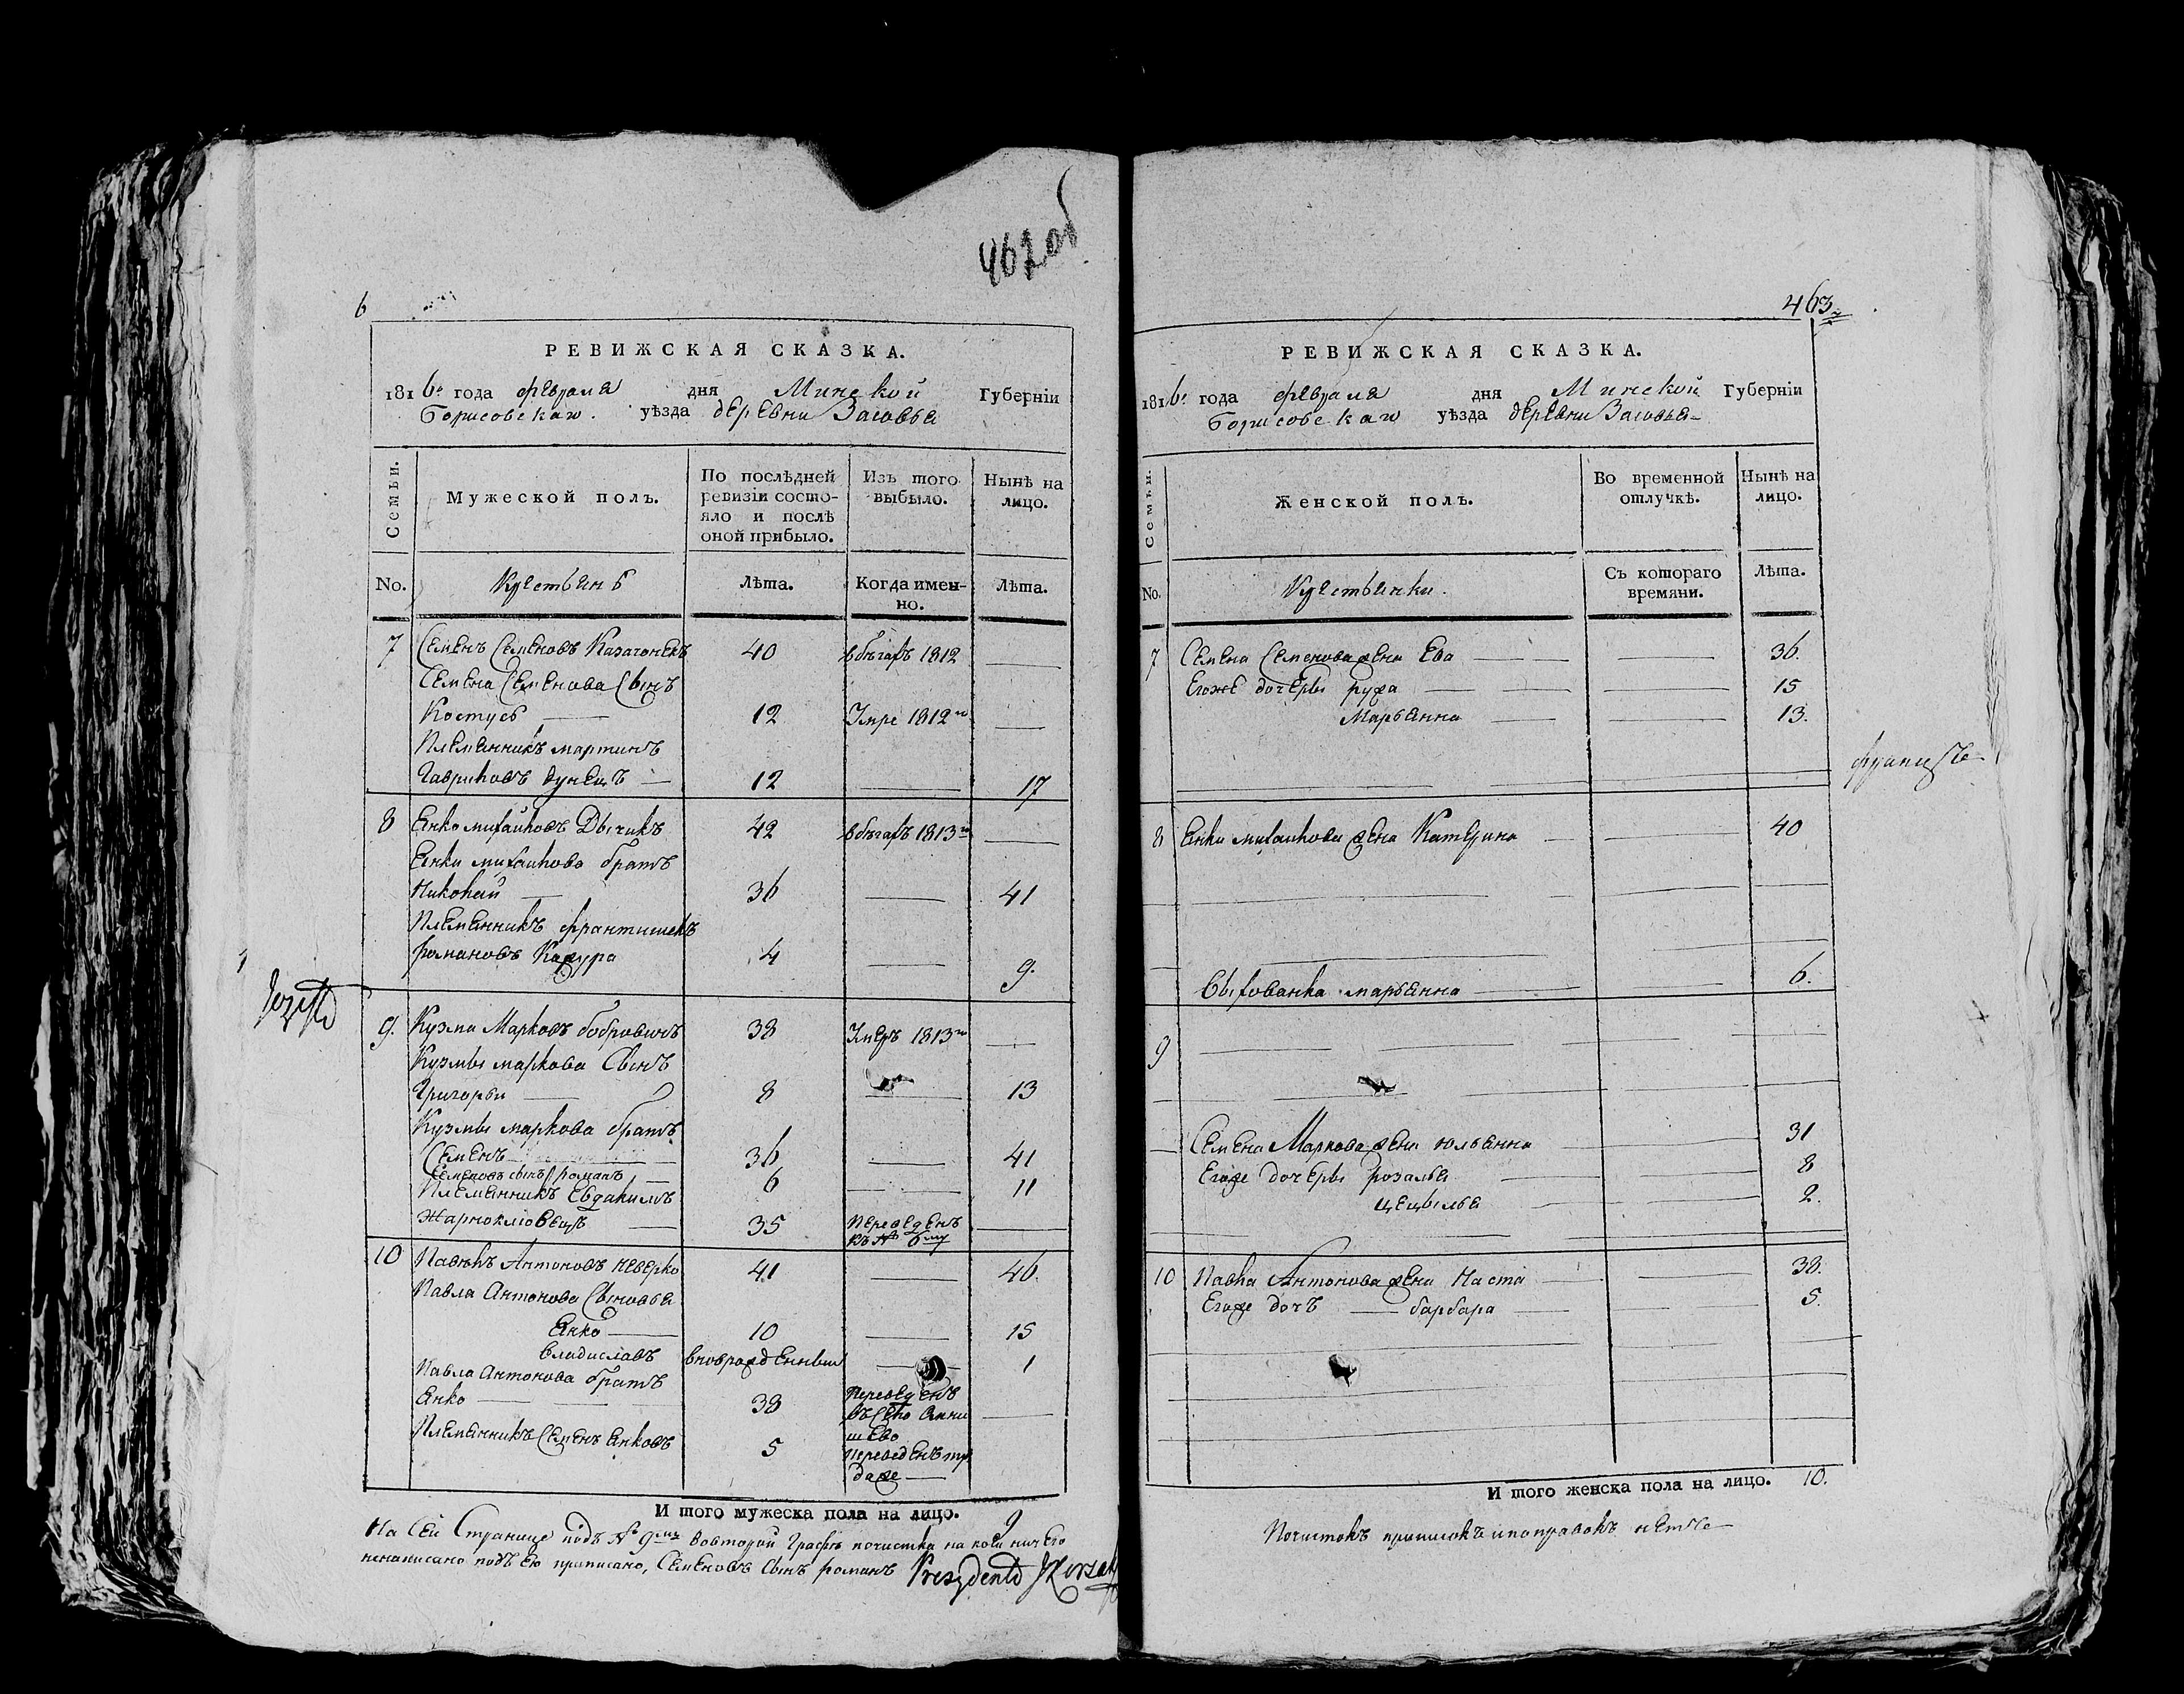 462 об
6
РЕВИЖСКАЯ СКАЗКА.
1816го года февраля дня Минской Губерніи
Борисовскаго уѣзда деревни Заговья
Семьи.
Мужеской полъ.
По послѣдней ревизіи состо-
яло и послѣ оной прибыло.
Изъ того выбыло.
Нынѣ на лицо.
No. Крестьянъ Лѣта. Когда имен-
но. Лѣта.
7 Семенъ Семеновъ Казачонекъ 40 вбѣгахъ 1812
Семена Семенова Сынъ
Костусь 12 Умре 1812го
Племянникъ мартинъ
Гавриловъ дунецъ 12 17
8 Янко михайловъ Дычикъ 42 вбѣгахъ 1813го
Янки михайлова братъ
Николай 36 41
Племянникъ франтишекъ
романовъ Кажура 4 9.
9. Кузма Марковъ бобровикъ 38 Умеръ 1813го
Кузмы маркова Сынъ
Григорьи 8 13
Кузмы маркова братъ
Семенъ 36 41
Семеновъ сынъ романъ 6 11
Племянникъ Евдакимъ
Жарноклювецъ 35 переведенъ
къ № 6му
10 Павелъ Антоновъ неверко 41 46.
Павла Антонова Сыновья
Янко 10 15
владиславъ вноврожденный 1
Павла Антонова братъ
Янко 38 переведенъ
въ Село
шево
Племянникъ Семенъ Янковъ 5 переведенъ ту
даже
И того мужеска пола на лицо. 9
На Сей Странице подъ № 9мъ вовторой Графѣ почистка на коей ничего
ненаписано подъ ею приписано, Семеновъ Сынъ романъ Prezydent J Korzak
Jozeff
463
РЕВИЖСКАЯ СКАЗКА.
1816го года февраля дня Минской Губерніи
Борисовскаго уѣзда деревни Заговья
Семьи.
Женской полъ.
Во временной отлучкѣ.
Нынѣ на лицо.
No. Крестьянки. Съ котораго
времяни. Лѣта.
7 Семена Семенова жена Ева 36.
Егоже дочеры ружа 15
Марьянна 13.
8 Янки михайлова жена Катерина 40
Выхованка марьянна 6.
9
Семена Маркова жена юльянна 31
Егоже дочеры розалья 8
цецылья 2.
10 Павла Антонова жена Наста 38.
Егоже дочъ барбара 5.
И того женска пола на лицо. 10.
Почистокъ приписокъ ипоправокъ нетъ